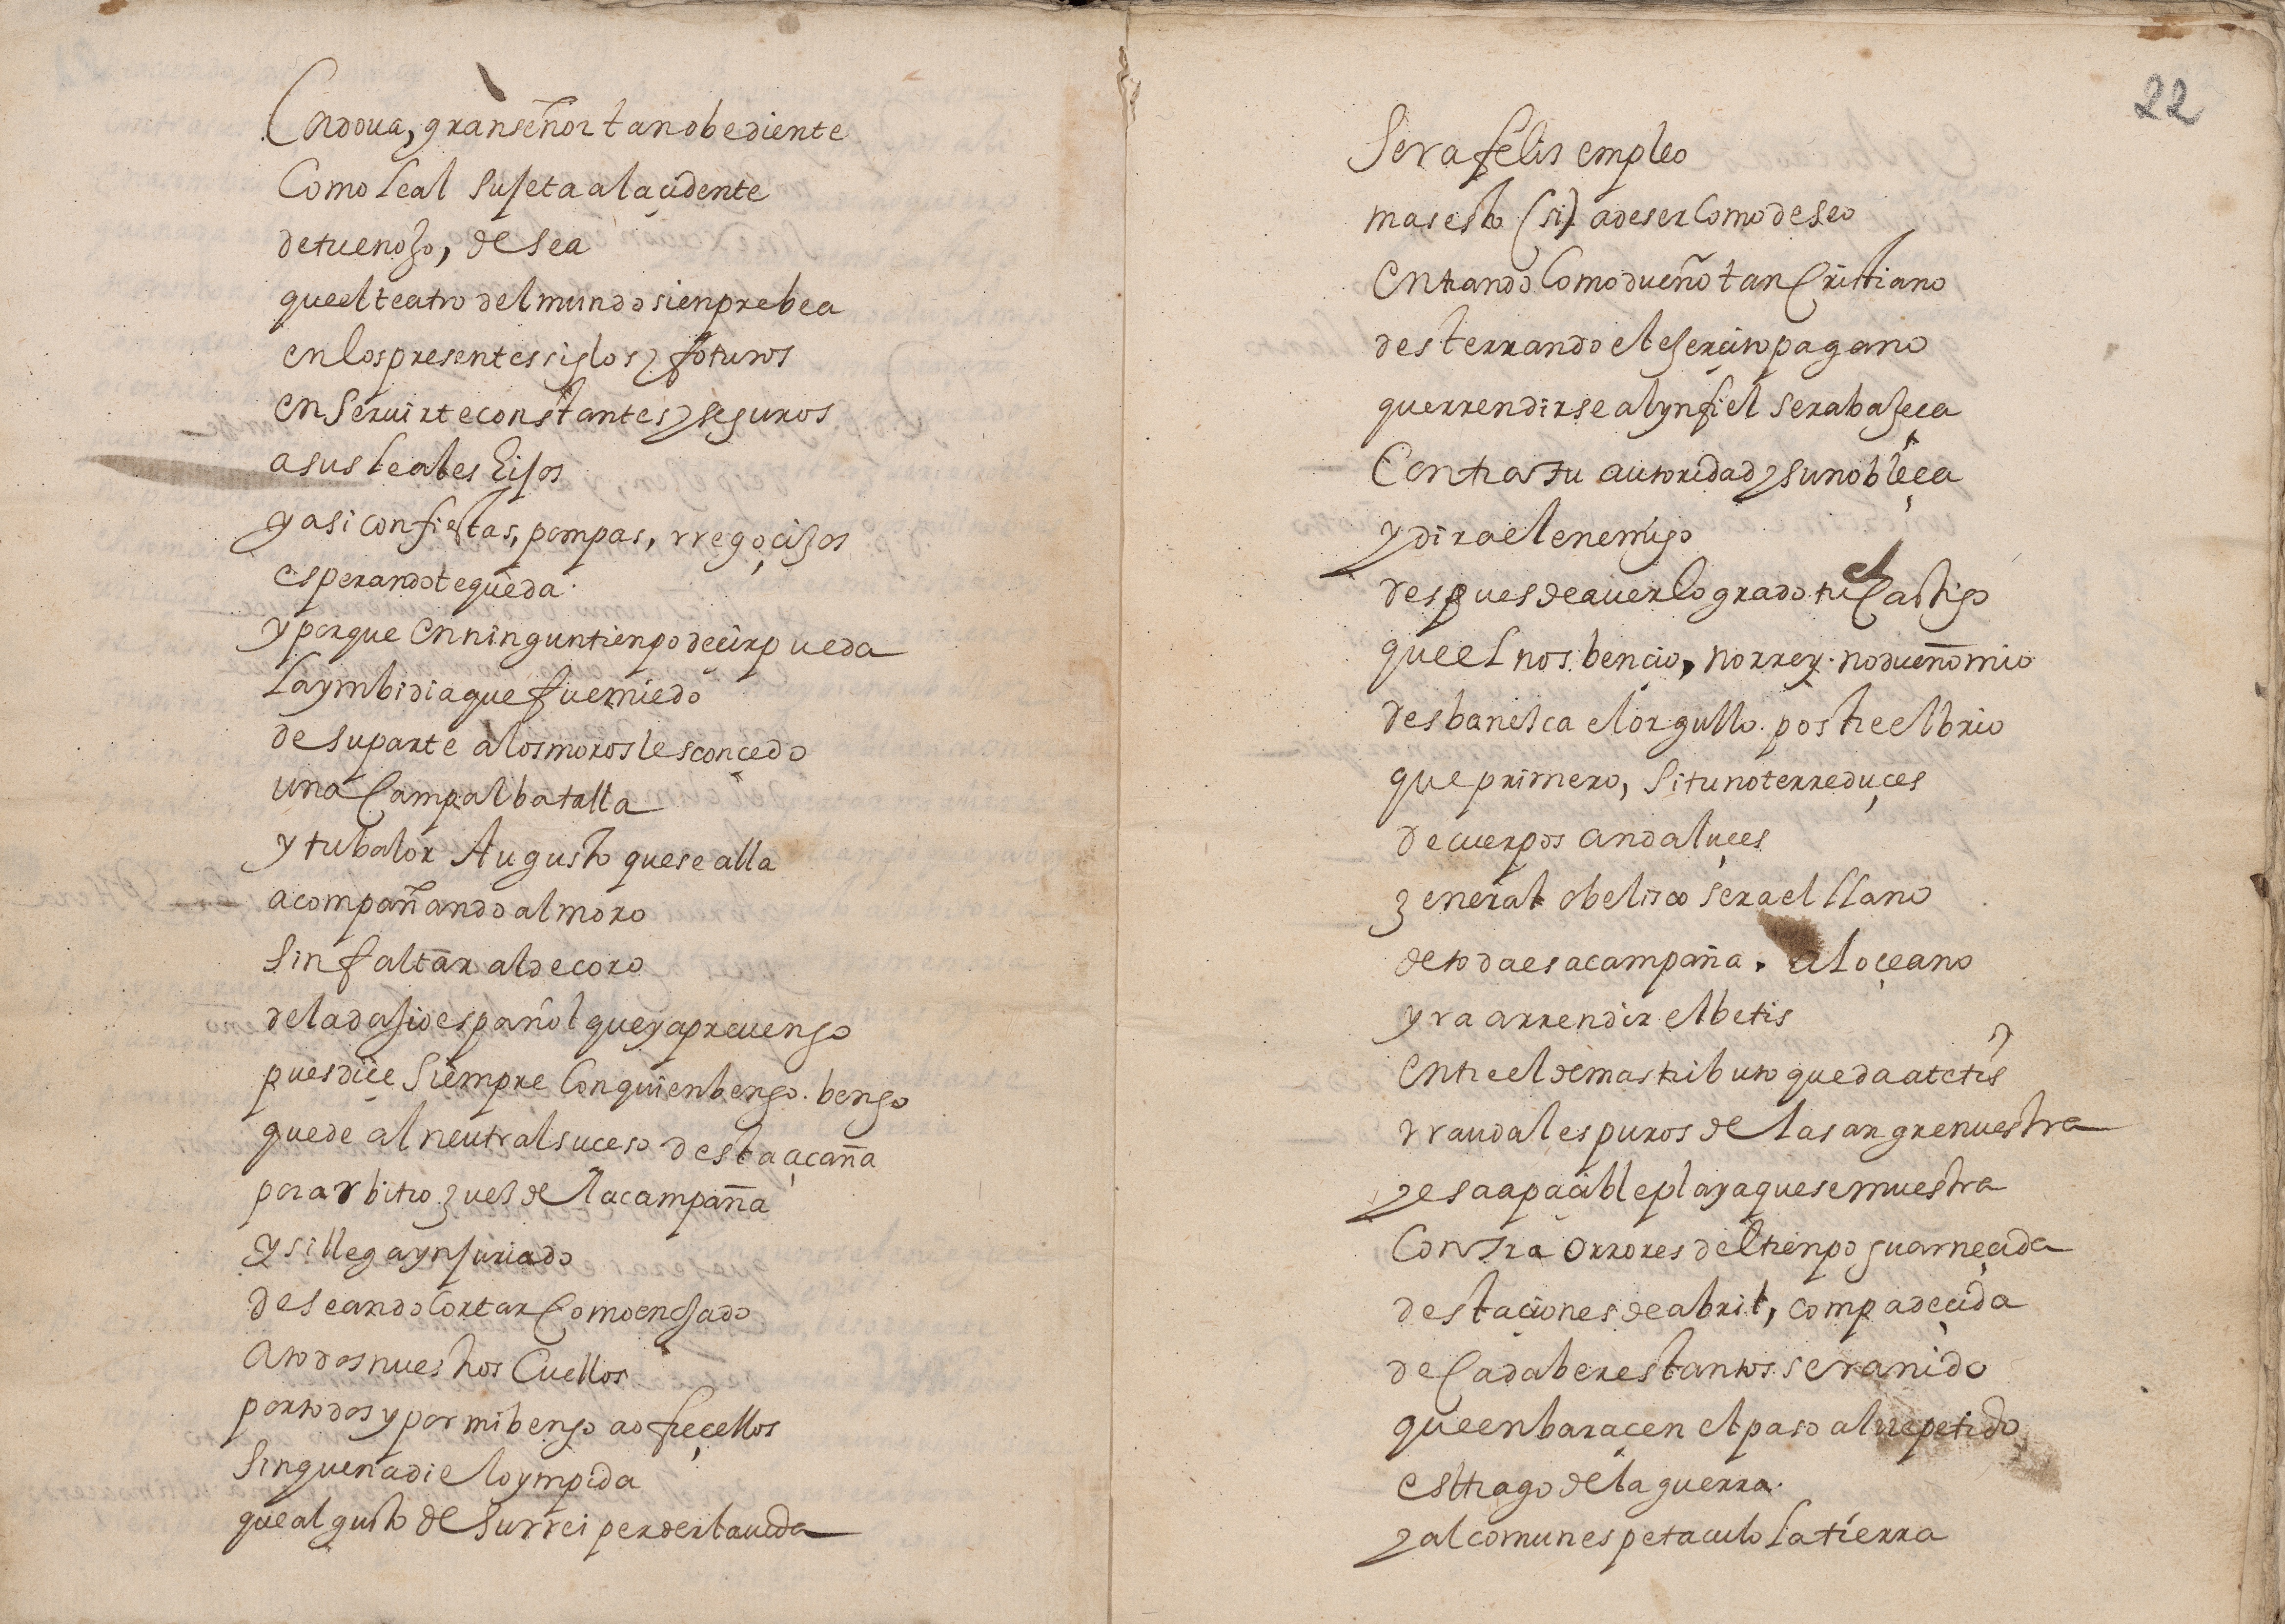 Cordoua, gran señor tan obediente
Como leal sujeta al acidente
de tu enojo, desea
que el teatro del mundo sienpre bea
en los presentes siglos y foturos
en seruirte constantes y seguros
a sus leales hijos
y asi con fiestas, pompas, rregoçijos
esperandote queda.
y porque en ningun tienpo deçir pueda
la ymbidia que fue miedo
de su parte a los moros les conçedo
una Campal batalla
y tu balor Augusto que se alla
acompañando al moro
sin faltar al decoro
del adajio español que ya preuengo
pues diçe siempre Con quien bengo. bengo
quede al neutral suceso desta açaña
por arbitro zues de la campaña
y si llega ynjuriado
deseando Cortar Como enojado
a todos nuestros Cuellos
por todos y por mi bengo a ofreçellos
sin que nadie lo ympida
que al gusto de su rrei perder la uida
22
Sera felis empleo
mas esto (si) a de ser Como deseo
entrando Como dueño tan Cristiano
desterrando el ejerçito pagano
que rrendirse al ynfiel sera bajeça
Contra tu autoridad y su nobleça
y dira el enemigo
despues de auer logrado tu el Castigo
que el nos bençio, no rrey. no dueño mio
desbanesca el orgullo. postre el brio
que primero, si tu no te rreduçes
de cuerpos andaluçes
zeneral obelisco sera el llano
de toda esa campaña. al oçeano
yra a rrendir el betis
entre el demas tributo que da a tetis
rraudales puros de la sangre nuestra
y esa apaçible playa que se muestra
Contra orrores del tienpo guarneçida
destaçiones de abril, compadeçida
de Cadaberes tantos sera nido
que enbaraçen el paso al rrepetido
estrago de la guerra.
y al comun espetaculo la tierra